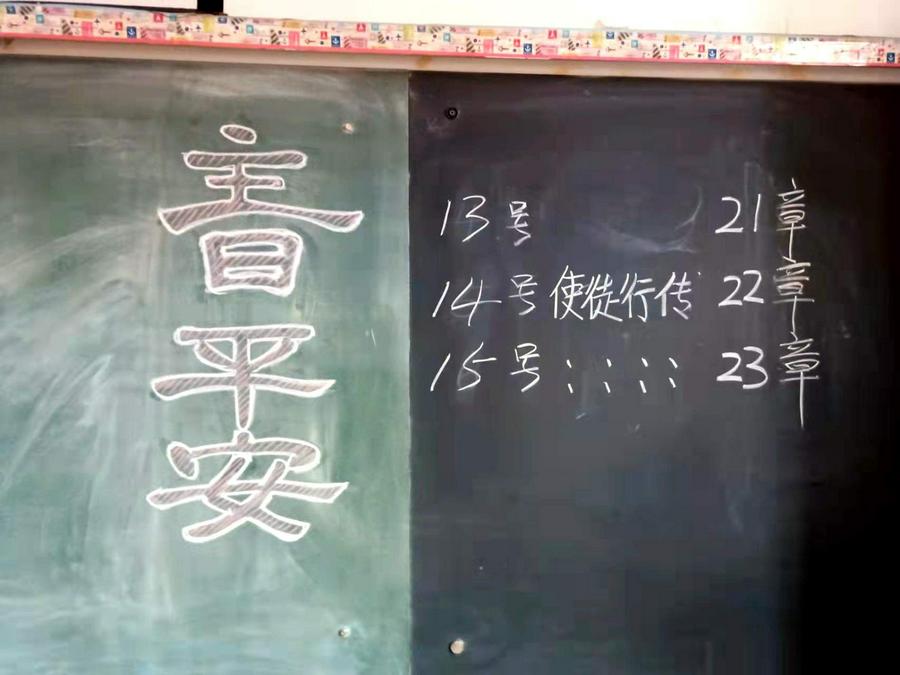 主日平安
13号 21章
14号使徒行传 22章
15号 : : : : 23章